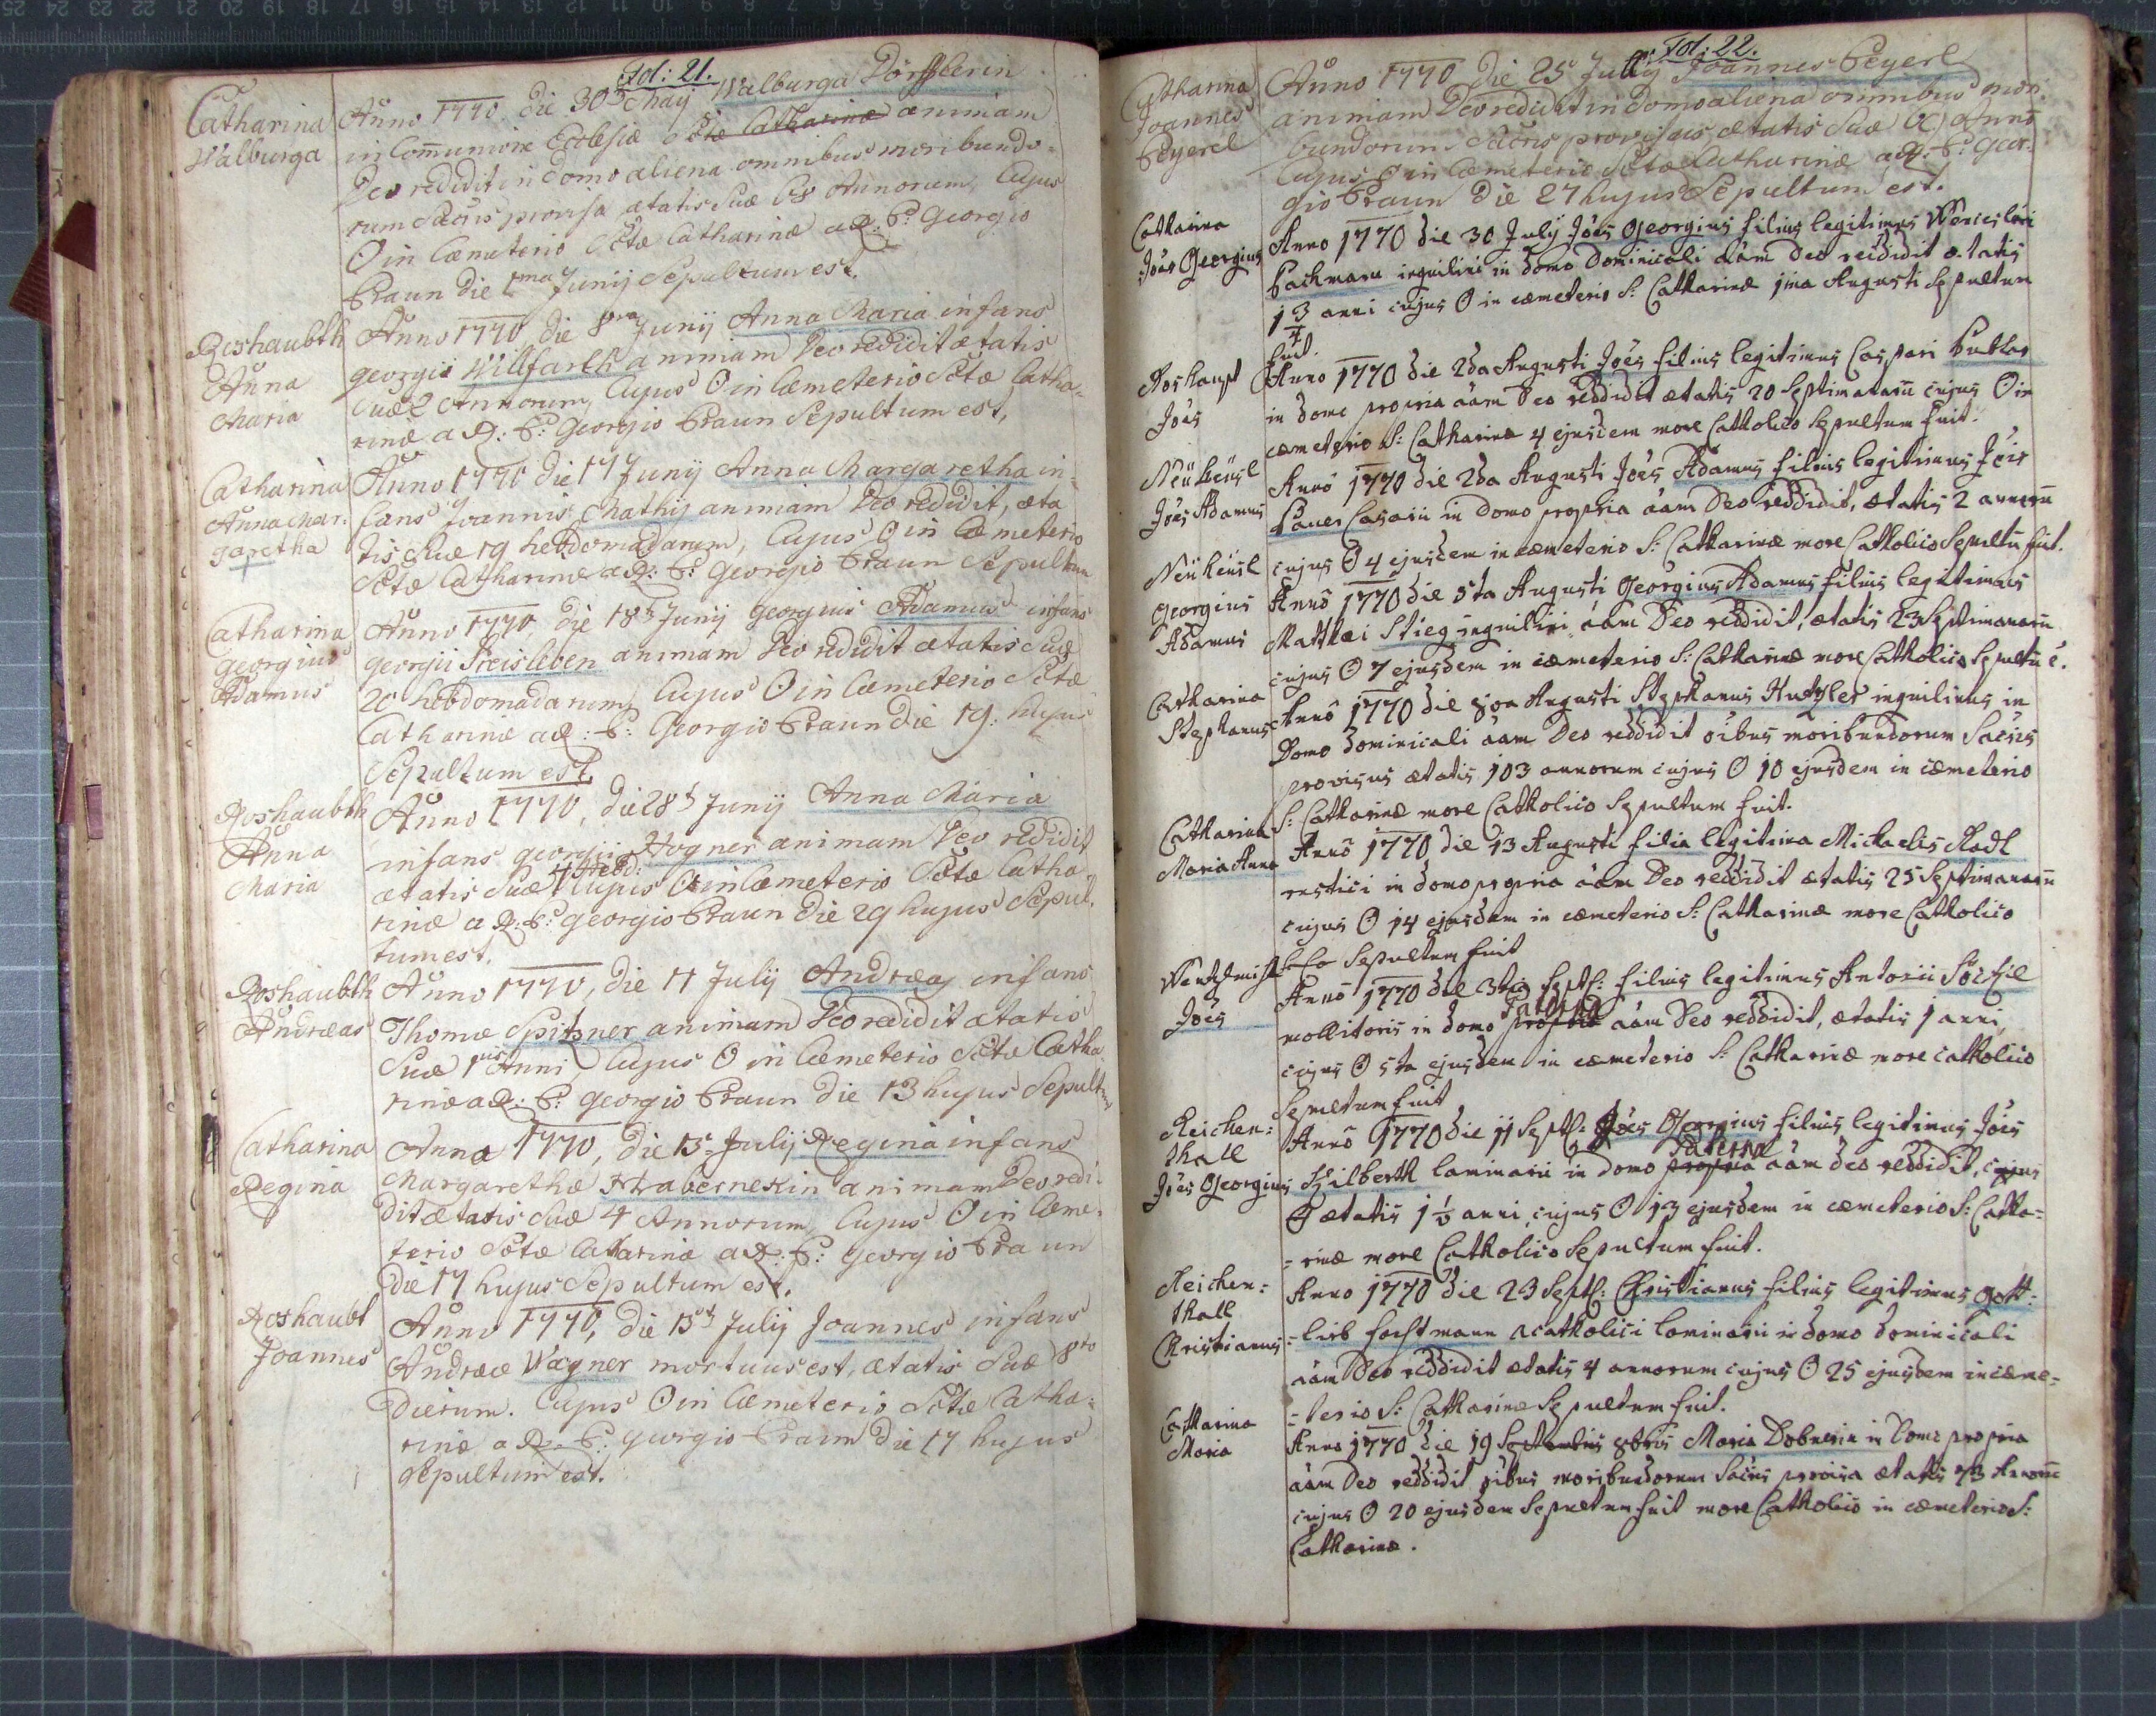 Fol: 21.
Catharina
Walburga
Anno 1770. die 30 May Walburga Dörfflerin
in Communione Ecclesiæ Stæ Catharinæ animam
Deo redidit in Domo aliena omnibus moribundo=
rum Sacris provisa ætatis suæ Annorum, Cujus
O in Cæmeterio Sctæ Catharinæ a R: P: Georgio
Braun die 1ma Junij Sepultum est.
Roshaubth
Anna
Maria
Anno 1770 die 8va Junij Anna Maria infans
georgii Willfarth animam Deo redidit ætatis
suæ 2 Annorum, Cujus O in Cæmeterio Sctæ Catha=
rinæ a R: P: Georgio Braun Sepultum est,
Catharina
Anna Mar:
garetha
Anno 1770 die 17 Junij Anna Margaretha in=
fans Joannis Mathij animam Deo redidit, æta
tis suæ 19 hebdomadarum, Cujus O in Cæmeterio
Sctæ Catharinæ a R: P: Georgio Braun Sepultum
Catharina
georgius
Adamus
Anno 1770 die 18 Junij Georgius Adamus infans
georgii Preisleben animam Deo redidit ætatis suæ
20 hebdomadarum, Cujus O in Cæmeterio Sctæ
Catharinæ a R: P: Georgio Braun die 19. hujus
Sepultum est.
Roshaubth
Anna
Maria
Anno 1770, die 28 Junij Anna Maria
infans georgii Hogner animam Deo redidit
hebd:
ætatis suæ Cujus O in Cæmeterio Sctæ Catha=
rinæ a R: P: georgio Braun die 29 hujus Sepul=
tum est.
Roshaubth
Andreas
Anno 1770, die 11 Julij Andreas infans
Thomæ Spitzner animam Deo redidit ætatis
Suæ 1nis Anni, Cujus O in Cæmeterio Sctæ Catha
rinæ a R: P: georgio Braun die 13 hujus Sepultum
Catharina
Regina
Anno 1770, die 15 Julij Regina infans
Margarethæ Hrabernekin animam Deo redi=
dit ætatis suæ 4 Annorum, Cujus O in Cæme=
terio Sctæ Catarinæ a R: P: georgio Braun
die 17 hujus Sepultum est.
Roshaubt
Joannes
Anno 1770, die 15 Julij Joannes infans
Andreæ Wagner mortuus est, ætatis suæ 8to
Dierum. Cujus O in Cæmeterio Sctæ Catha=
rinæ a R: P: georgio Braun die 17 hujus
Sepultum est.
Fol: 22.
Catharina
Joannes
Beyerl
Anno 1770 die 25 Julij Joannes Beyerl
animam Deo redidit in domo aliena omnibus mori=
bundorum Sacris provisus, ætatis suæ Anno
Cujus O in Cæmeterio Sctæ Catharinæ a R: P: geor=
gio Braun die 27 hujus Sepultum est.
Catharina
Joes Georgius
Anno 1770 die 30 July Joes Georgius filius legitimus Wenceslai
Bachmann inquilini in domo Dominicali aam Deo reddidit ætatis
1 3/4 anni cujus O in cæmeterio S: Catharinæ 1ma Augusti Sepultum
fuit.
Roshaupt
Joes
Anno 1770 die 2da Augusti Joes filius legitimus Caspari Butler
in domo propria aam Deo reddidit ætatis 20 Septimanaru cujus O in
cæmeterio S: Catharinæ 4 ejusdem more Catholico Sepultum fuit.
Neüheüsl
Joes Adamus
Anno 1770 die 2da Augusti Joes Adamus filius legitimus Jois
Bauer Casarii in domo propria aam Deo reddidit, ætatis 2 annoru
cujus O 4 ejusdem in cæmeterio S: Catharinæ more Catholico Sepultu fuit.
Neüheüsl
Georgius
Adamus
Anno 1770 die 5ta Augusti Georgius Adamus filius legitimus
Matthæi Stieg inquilini aam Deo reddidit, ætatis 23 Septimanaru
cujus O 7 ejusdem in cæmeterio S: Catharinæ more Catholico Sepultu e.
Catharina
Stephanus
Anno 1770 die 8va Augusti Stephanus Hutzler inquilinus in
Domo dominicali aam Deo reddidit oibus moribundorum Sacris
provisus ætatis 103 annorum cujus O 10 ejusdem in cæmeterio
S: Catharinæ more Catholico Sepultum fuit.
Catharina
Maria Anna
Anno 1770 die 13 Augusti filia legitima Michaelis Radl
rustici in domo propria aam Deo reddidit ætatis 25 Septimanaru
cujus O 14 ejusdem in cæmeterio S: Catharinæ more Catholico
Sepultum fuit
Joes
Anno 1770 die 3tia Septb: filius legitimus Antonii
paterna
mollitoris in domo propria aam Deo reddidit, ætatis 1 anni,
cujus O 5ta ejusdem in cæmeterio S: Catharinæ more catholico
Sepultum fuit
Reichen=
thall
Joes Georgius
Anno 1770 die 11 Septb: Joes Georgius filius legitimus Jois
paterna
Hilberth laminarii in domo propria aam Deo reddidit, cujus
O ætatis 1 1/2 anni, cujus O 13 ejusdem in cæmeterio S: Catha=
=rinæ more Catholico Sepultum fuit.
Reichen=
thall
Christianus
Anno 1770 die 23 Septb: Christianus filius legitimus Gott=
=lieb Horstmann acatholici laminarii in domo dominicali
aam Deo reddidit ætatis 4 annorum cujus O 25 ejusdem in cæme=
=terio S: Catharinæ Sepultum fuit.
Catharina
Maria
Anno 1770 die 19 Septembris 8bris Maria Dobnerin in domo propria
aam Deo reddidit oibus moribundorum Sacris provisa ætatis 73 Annoru
cujus O 20 ejusdem Sepultum fuit more Catholico in cæmeterio S:
Catharinæ.